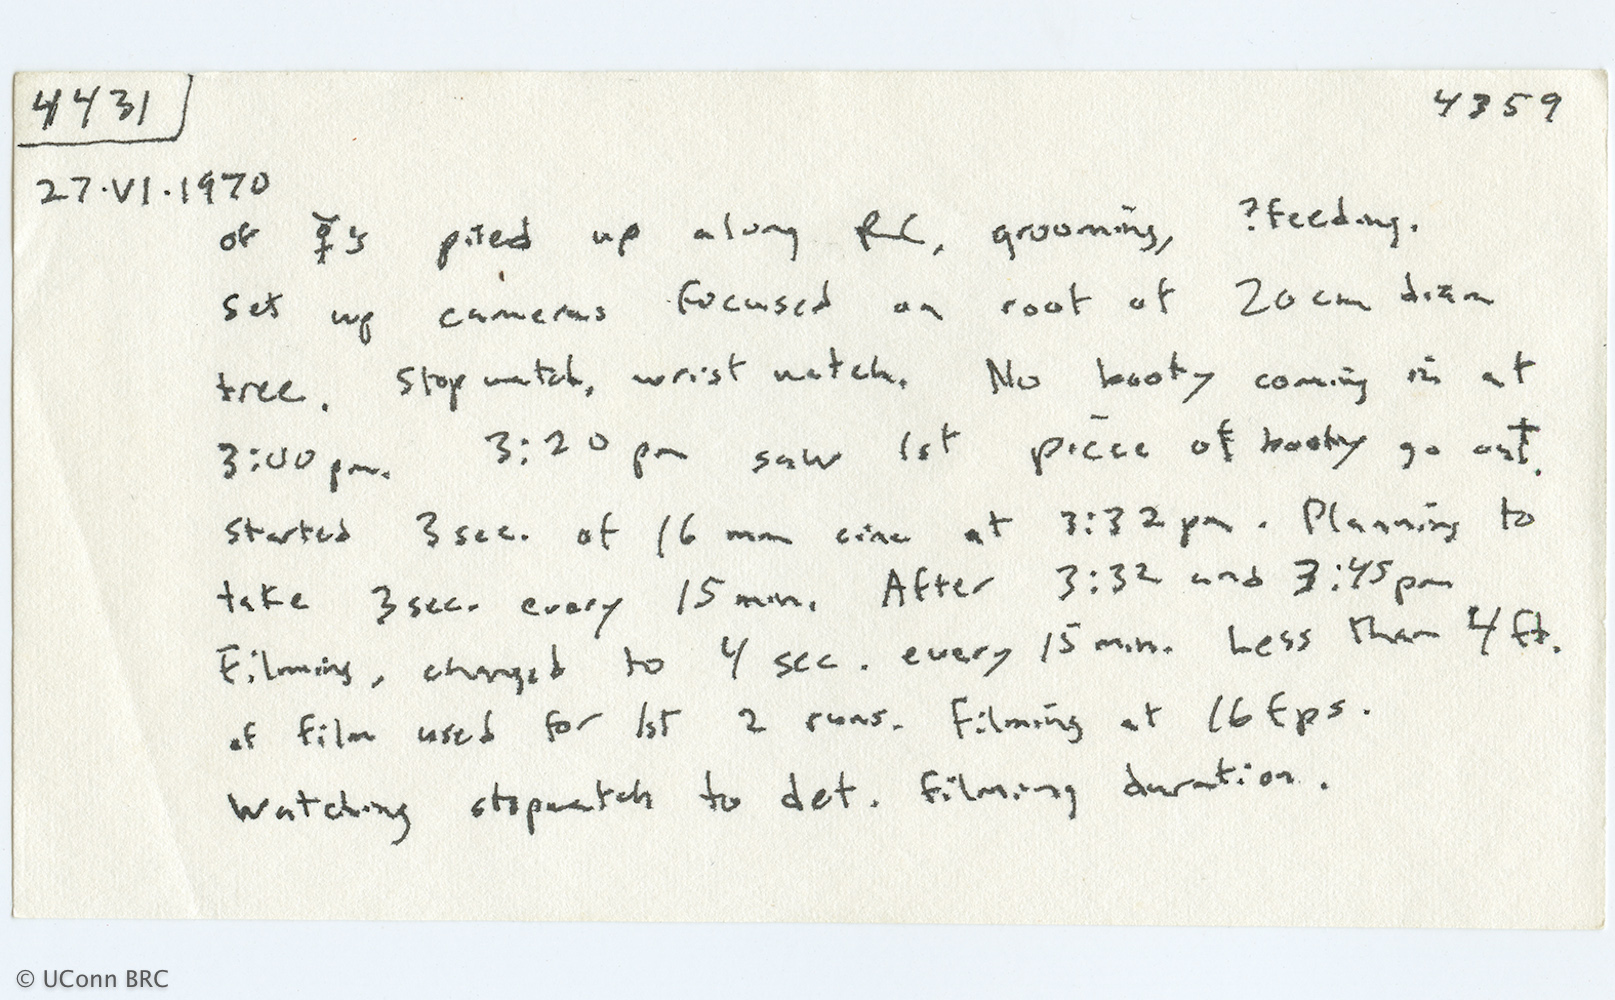 4431 4359
27·VI·1970
of ☿s piled up along RC, grooming, ?feeding.
Set up cameras focused on root of 20cm diam
tree. Stopwatch, wrist watch. No booty coming in at
3:00 pm. 3:20 pm saw 1st piece of booty go out.
Started 3 sec. of 16 mm cine at 3:32 pm. Planning to
take 3 sec. every 15 min. After 3:32 and 3:45 pm
Filming, changed to 4 sec. every 15 min. Less than 4 ft.
of film used for 1st 2 runs. Filming at 16 fps.
Watching stopwatch to det. filming duration.
© UConn BRC